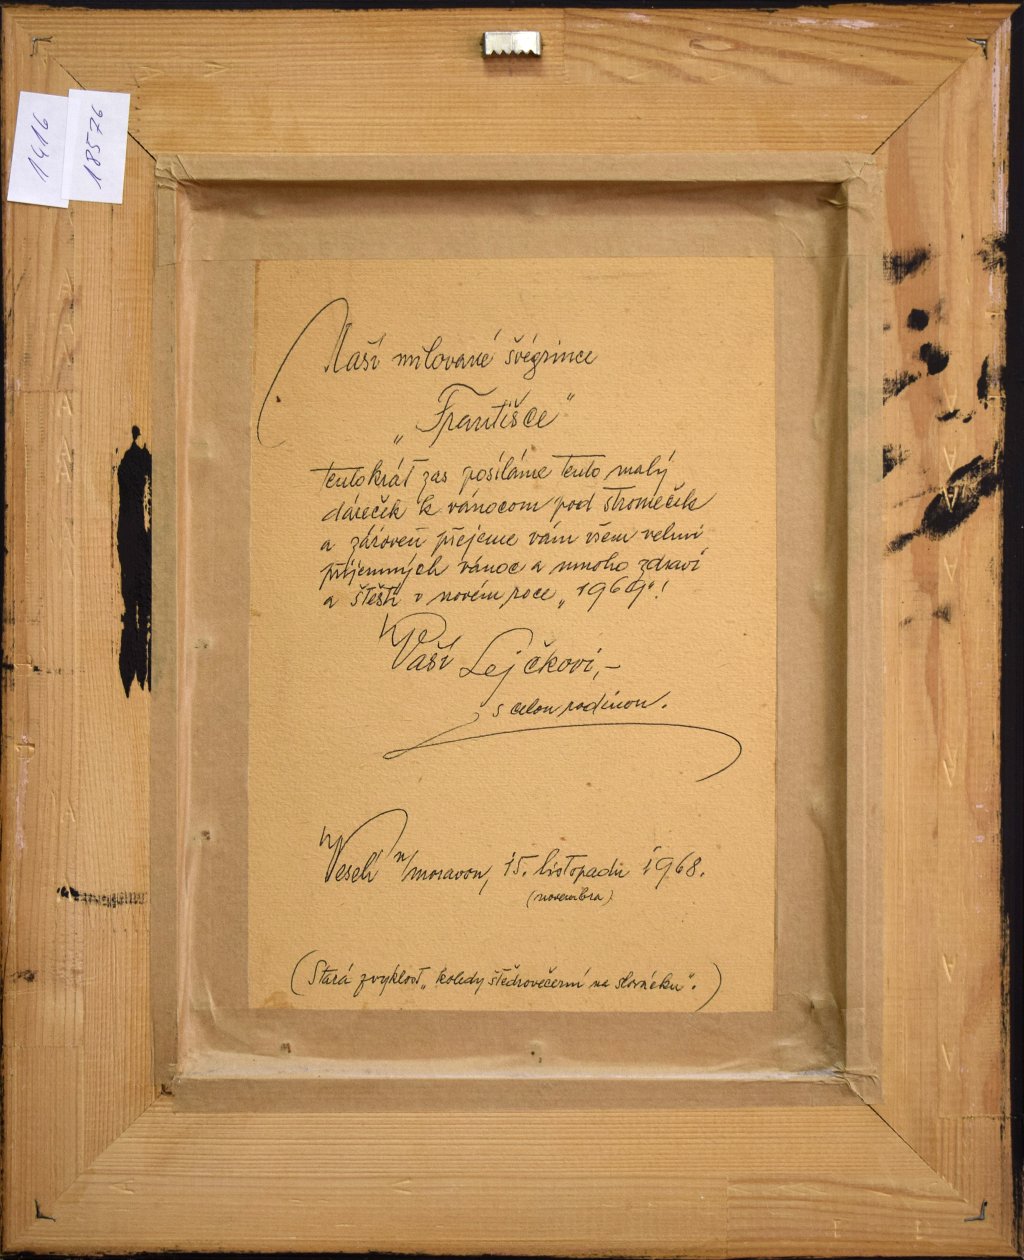 1416
18576
Naší milované švégrince
„Františce"
tentokrát zas posíláme tento malý
dáreček k vánocom pod stromeček
a zároveň přejeme vám všem velmi
příjemných vánoc a mnoho zdraví
a štěstí v novém roce „1969"!
Vaši Lejčkovi,-
s celou rodinou.
Veselí n/moravou, 15. listopadu 1968.
(novembra)
(Stará zvyklost „koledy štědrovečerní na slovácku".)